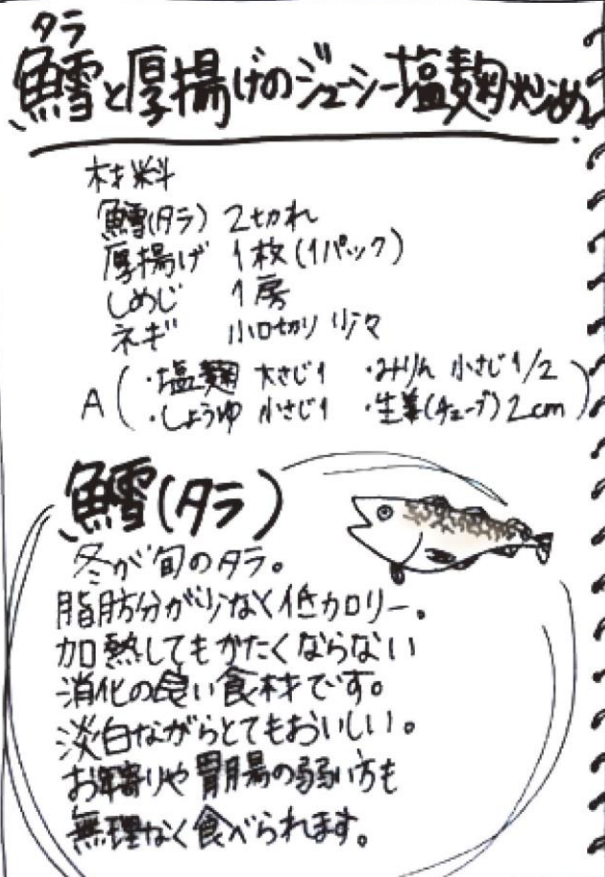 タラ
鱈と厚揚げのジューシー塩麹炒め
材料
鱈(タラ) 2切れ
厚揚げ 1枚(1パック)
しめじ 1房
ネギ 小口切り 少々
A(・塩麹 大さじ1 ・みりん 小さじ1/2
・しょうゆ 小さじ1 ・生姜(チューブ)2cm)
鱈(タラ)
冬が旬のタラ。
脂肪分が少なく低カロリー。
加熱してもかたくならない
消化の良い食材です。
淡白ながらとてもおいしい。
お年寄りや胃腸の弱い方も
無理なく食べられます。